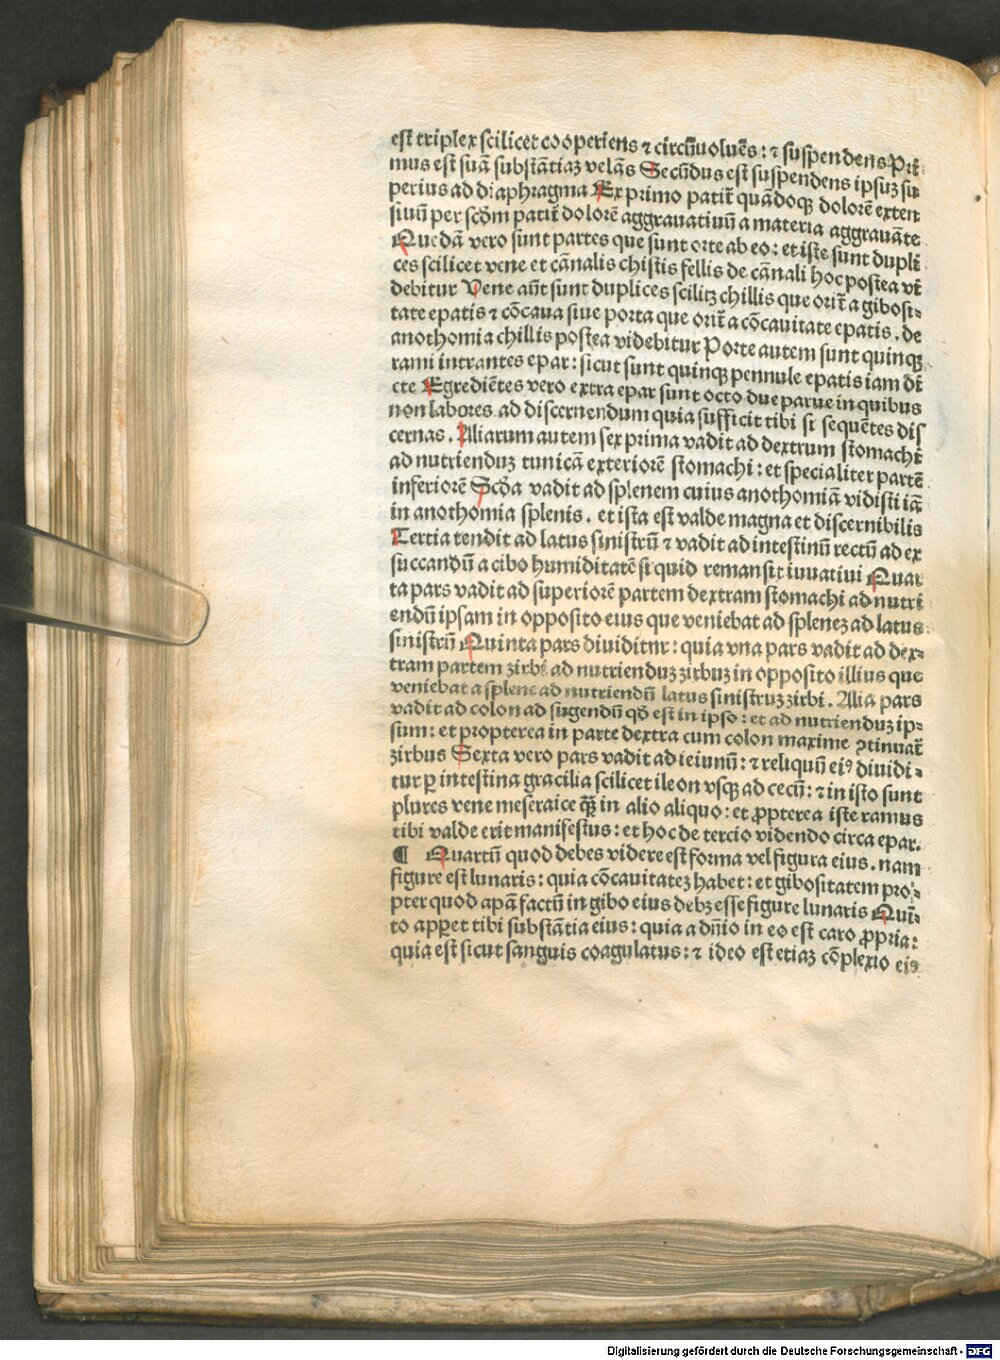 est triplex scilicet cooperiens ⁊ circũuoluẽs: ⁊ suspendens Pri
mus est suã substãtiaꝫ velãs Secũdus est suspendens ipsuꝫ su
perius ad diaphragma Ex primo patit̃ quãdoqꝫ dolorẽ exten
siuũ per scðm patit̃ dolorẽ aggrauatiuũ a materia aggrauãte
Quedã vero sunt partes que sunt orte ab eo: et iste sunt dupli
ces scilicet vene et cãnalis chistis fellis de cãnali hoc postea vi
debitur Vene aũt sunt duplices scilitꝫ chillis que orit̃ a gibosi⸗
tate epatis ⁊ cõcaua siue porta que orit̃ a cõcauitate epatis. de
anothomia chillis postea videbitur Porte autem sunt quinqꝫ
rami intrantes epar: sicut sunt quinqꝫ pennule epatis iam di
cte Egrediẽtes vero extra epar sunt octo due parue in quibus
non labores ad discernendum quia sufficit tibi si sequẽtes dis
cernas. Aliarum autem sex prima vadit ad dextrum stomachi
ad nutrienduꝫ tunicã exteriorẽ stomachi: et specialiter partẽ
inferiorẽ Scða vadit ad splenem cuius anothomiã vidisti iã
in anothomia splenis. et ista est valde magna et discernibilis
Tertia tendit ad latus sinistrũ ⁊ vadit ad intestinũ rectũ ad ex
succandũ a cibo humiditatẽ si quid remansit iuuatiui Quar
ta pars vadit ad superiorẽ partem dextram stomachi ad nutri
endũ ipsam in opposito eius que veniebat ad spleneꝫ ad latus
sinistrũ Quinta pars diuiditur: quia vna pars vadit ad dex⸗
tram partem zirbi ad nutrienduꝫ zirbuꝫ in opposito illius que
veniebat a splene ad nutriendũ latus sinistruꝫ zirbi. Alia pars
vadit ad colon ad sugendũ qð est in ipso: et ad nutrienduꝫ ip⸗
sum: et propterea in parte dextra cum colon maxime ꝯtinuat̃
zirbus Sexta vero pars vadit ad ieiunũ: ⁊ reliquũ eiꝰ diuidi⸗
tur ꝑ intestina gracilia scilicet ileon vsqꝫ ad cecũ: ⁊ in isto sunt
plures vene meseraice q̃ꝫ in alio aliquo: et ꝓpterea iste ramus
tibi valde erit manifestus: et hoc de tercio videndo circa epar.
¶ Quartũ quod debes videre est forma vel figura eius. nam
figure est lunaris: quia cõcauitateꝫ habet: et gibositatem pro⸗
pter quod apã factũ in gibo eius debꝫ esse figure lunaris Quĩ⸗
to apꝑet tibi substãtia eius: quia a dñio in eo est caro ꝓpria:
quia est sicut sanguis coagulatus: ⁊ ideo est etiaꝫ cõplexio eiꝰ
Digitalisierung gefördert durch die Deutsche Forschungsgemeinschaft - DFG